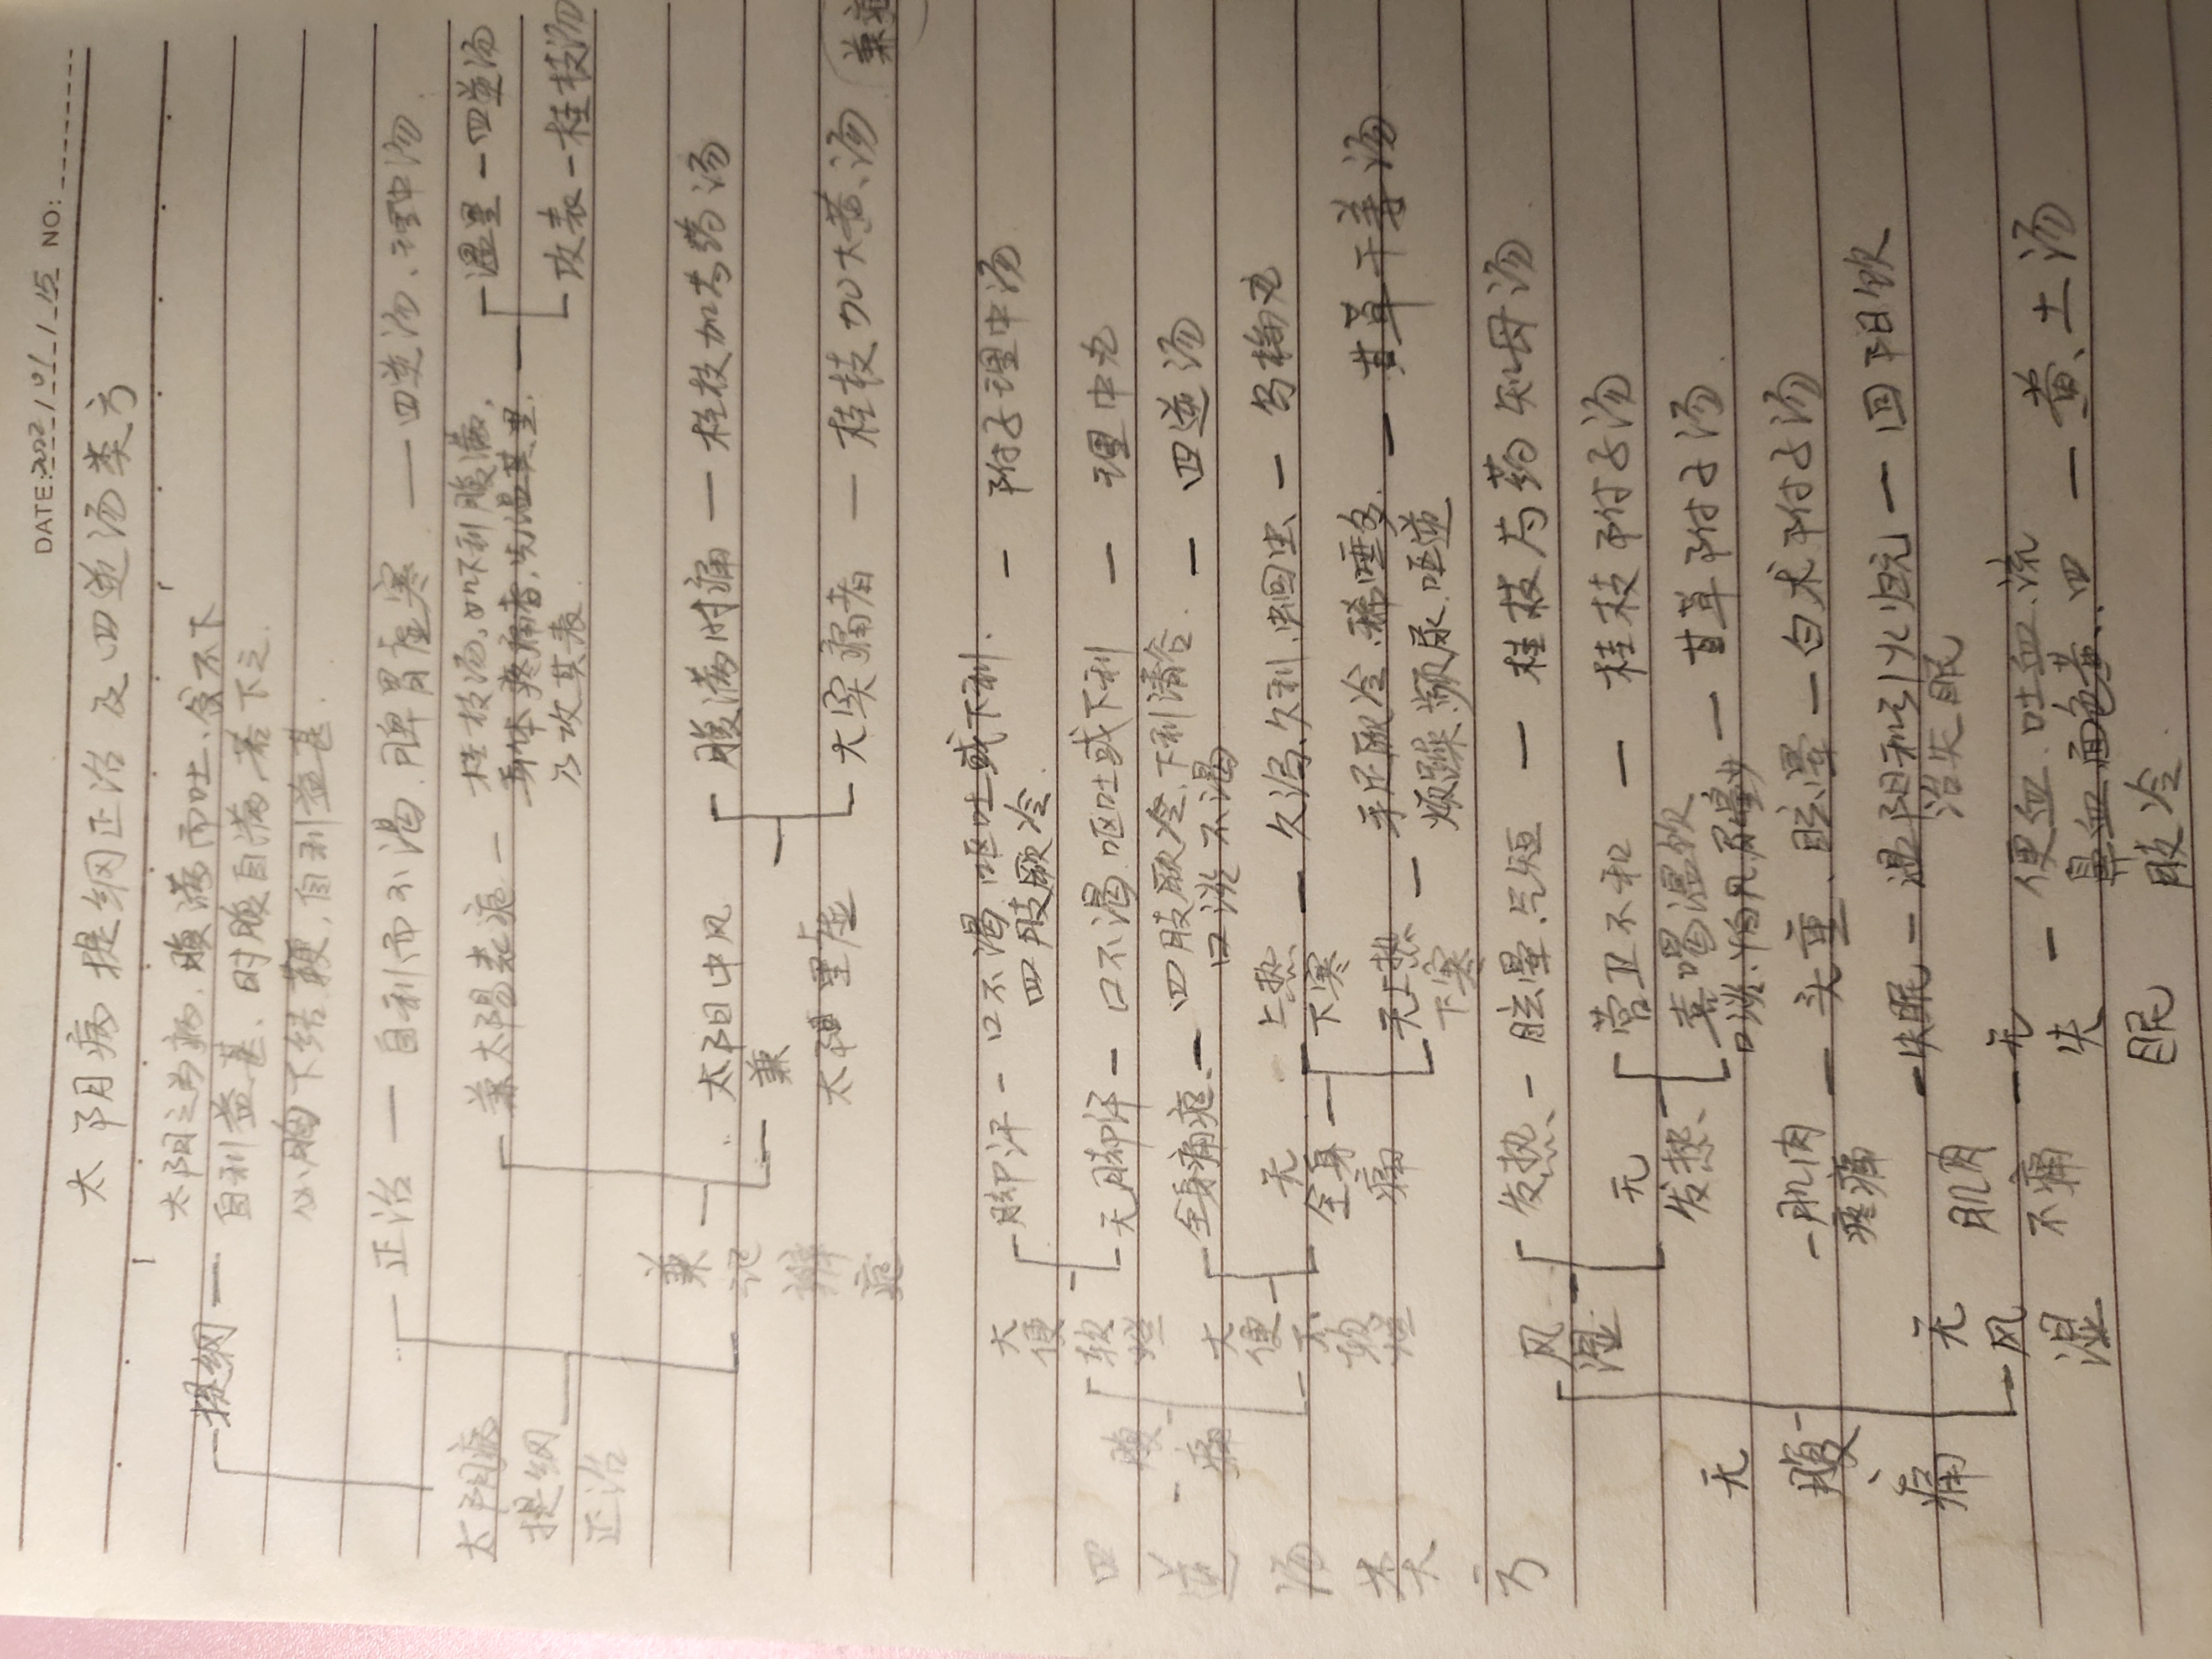 DATE:2022/01/15 NO:
太阴病提纲正治及四逆汤类方
提纲
太阴之为病、腹满而吐、食不下
自利益甚、时腹自满、若下之
必胸下结鞕,自利益甚
太阴病
提纲
正治
正治 — 自利而不渴 脾胃虚寒 — 四逆汤、理中汤
兼太阳表症 — 桂枝汤, 如下利腹满,
身体疼痛者,先温其里,
乃攻其表
温里 — 四逆汤
攻表 — 桂枝汤
兼
记
辨
症
太阳中风
兼
太阴里虚
腹满时痛 — 桂枝加芍药汤
大实痛者 — 桂枝加大黄汤
兼症
四
逆
汤
类
方
腹
痛
大
便
软
溏
脚汗 — 口不渴 呕吐或下利. — 附子理中汤
四肢厥冷
无脚汗 — 口不渴 呕吐或下利 — 理中丸
大
便
不
软
溏
全身痛症 — 四肢厥冷、下利清谷. — 四逆汤
口淡不渴
无
全身
痛
上热
下寒 — 久泻、久利、蛔回虫 — 乌梅丸
无上热
下寒 — 手足厥冷、稀唾多. — 甘草干姜汤
烦躁 频尿 呕逆
无
腹
痛
风
湿
发热 — 眩晕、气短 — 桂枝芍药知母汤
无
发热
营卫不和 — 桂枝附子汤
喜喝温饮 — 甘草附子汤
肌肉
疼痛 — 头重、眩晕 — 白术附子汤
无
风
湿
肌肉
不痛
失眠 — 温阳和引火归元 — 回阳饮
治失眠
无
失
眠
便血、吐血、流
鼻血 面色黄、四 — 黄土汤
肢冷